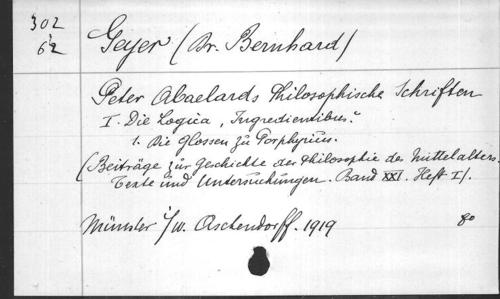 302
62
Geyer (Dr. Bernhard)
Peter Abaelards Philosophische Schriften
I. Die Logica, Ingredientibus."
1. Die Glossen zu Porphyrius.
(Beiträge zur Geschichte der Philosophie des Mittelalters.
Texte und Untersuchungen. Band XXI. Heft I).
Münster i/W. Aschendorff. 1919
8o